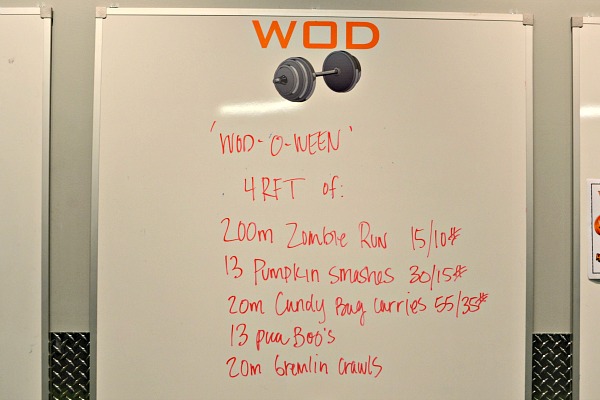 WOD
'WOD-O-WEEN'
4 RFT of:
200m Zombie Run 15/10#
13 Pumpkin smashes 30/15#
20m Candy Bag carries 55/35#
13 peea Boo's
20m Gremlin crawls